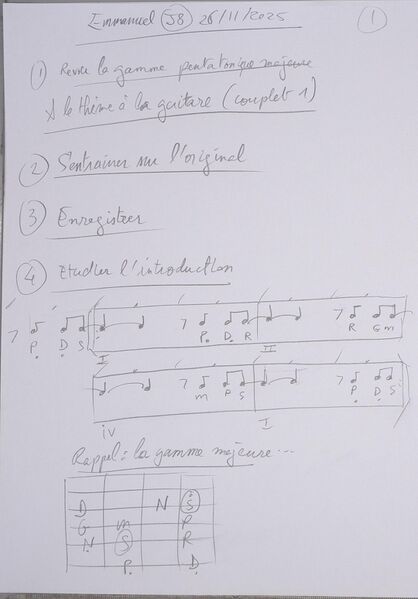 Emmanuel J8 26/11/2025 1
1 Revoir la gamme pentatonique majeure
& le thème à la guitare (couplet 1)
2 S'entrainer sur l'original
3 Enregistrer
4 Etudier l'introduction
P. D S P. D. R R G m
I II
m P S P. D S
IV I
Rappel : la gamme majeure...
D N S
G m P
N S R
P. D.